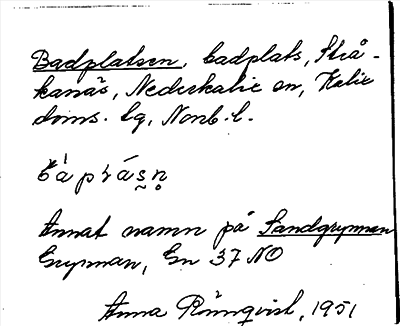 Badplatsen, badplats, Strå-
kanäs, Nederkalix sn, Kalix
doms. lg, Norrb. l.
Annat namn på Sandgrynnan
Grynnan, Gn 37 NO
Anna Rönnqvist, 1951